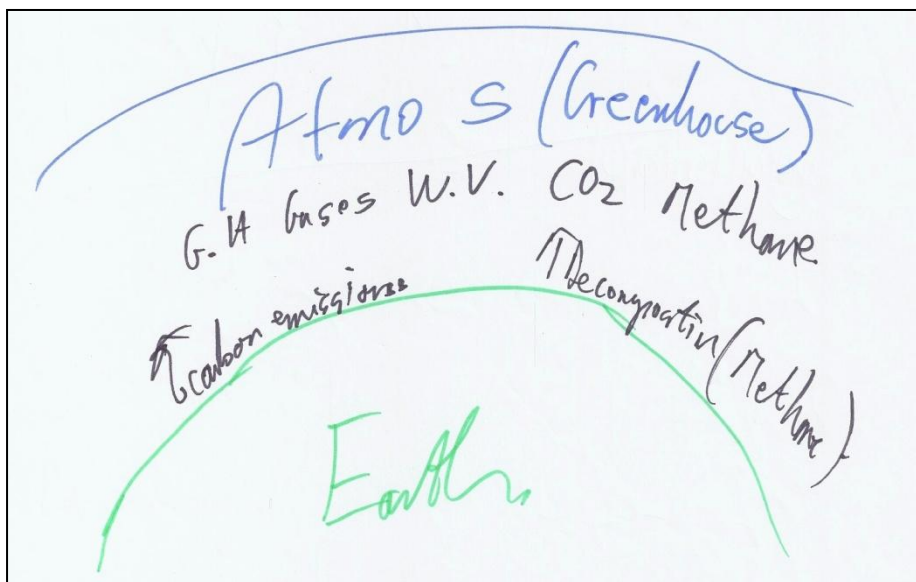 Atmo S (Greenhouse)
G.H Gases W.V. CO2 Methane
↑ carbon emissions
↑ Decompostin (Methane)
Earth